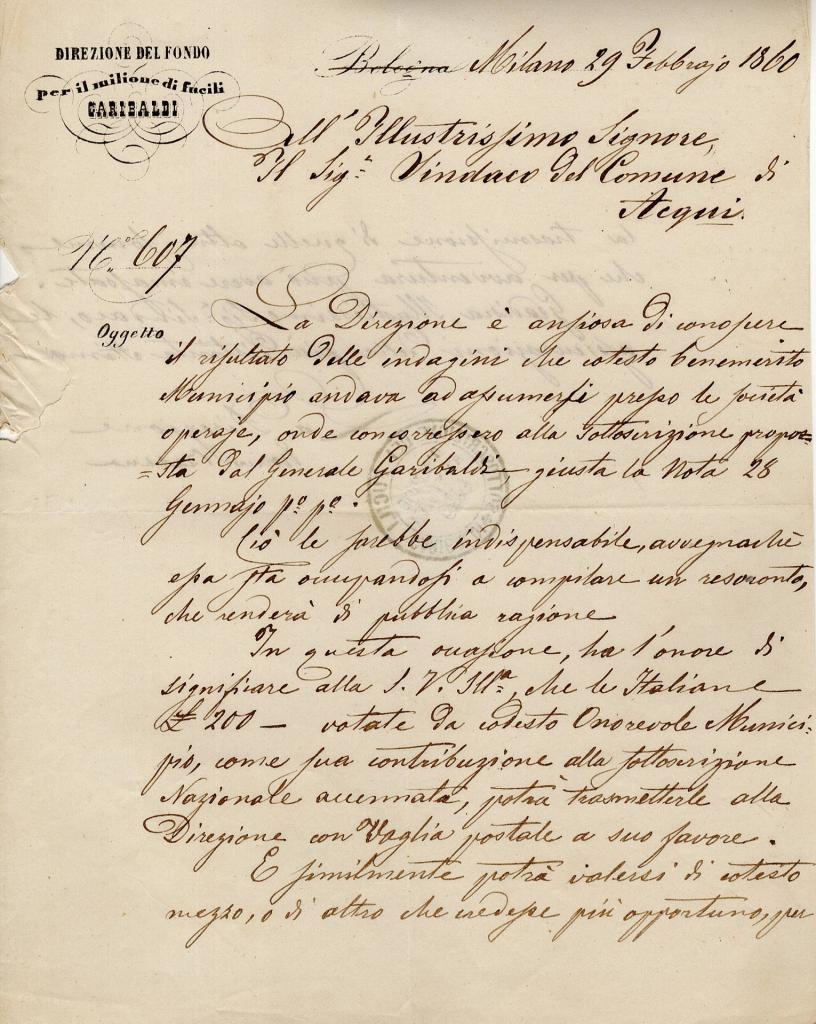 DIREZIONE DEL FONDO
per il milione di fucili
GARIBALDI
Bologna Milano 29 Febbrajo 1860
All' Illustrissimo Signore,
Il Sig.r Sindaco del Comune di
Acqui.
N.o 607
Oggetto
La Direzione è ansiosa di conoscere
il risultato delle indagini che cotesto benemerito
Municipio andava ad assumersi presso le società
operaje, onde concorressero alla sottoscrizione propos=
=sta dal Generale Garibaldi, giusta la Nota 28
Gennajo p.o p.o.
Ciò le sarebbe indispensabile, avvegnachè
essa sta occupandosi a compilare un resoconto,
che renderà di pubblica ragione
In questa occasione, ha l'onore di
significare alla S. V. Ill.a, che le Italiane
£ 200 — votate da codesto Onorevole Munici-
pio, come sua contribuzione alla sottoscrizione
Nazionale accennata, potrà trasmetterle alla
Direzione con Vaglia postale a suo favore.
E similmente potrà valersi di cotesto
mezzo, o di altro che credesse più opportuno, per